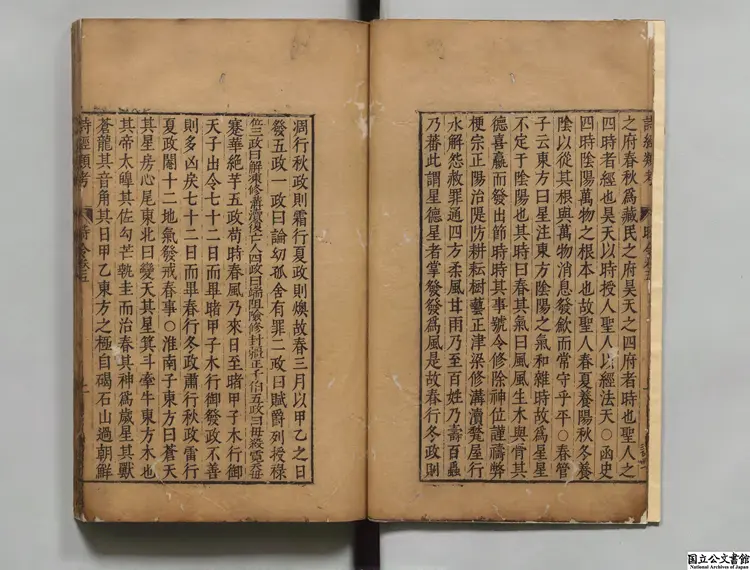 詩經類考
時令卷
之府春秋爲藏民之府昊天之四府者時也聖人之
四時者經也昊天以時授人聖人以經法天○函史
四時陰陽萬物之根本也故聖人春夏養陽秋冬養
陰以從其根與萬物消息發歛而常守乎平○春管
子云東方曰星注東方陰陽之氣和雜時故爲星星
不定于陰陽也其時曰春其氣曰風風生木與骨其
德喜嬴而發出節時時其事號令修除神位謹禱弊
梗宗正陽治隄防耕耘樹藝正津梁修溝瀆甃屋行
水解怨赦罪通四方柔風甘雨乃至百姓乃壽百蟲
乃蕃此謂星德星者掌發發爲風是故春行冬政則
凋行秋政則霜行夏政則燠故春三月以甲乙之日
發五政一政曰論幼孤舍有罪二政曰賦爵列授祿
位三政曰解凍修溝瀆復亡人四政曰端阻險修封疆正千伯五政曰毋殺麑夭毋
蹇華絕芋五政苟時春風乃來日至睹甲子木行御
天子出令七十二日而畢睹甲子木行御發政不善
則多凶矣七十二日而畢春行冬政肅行秋政雷行
夏政閹十二地氣發戒春事○淮南子東方曰蒼天
其星房心尾東北曰變天其星箕斗牽牛東方木也
其帝太皞其佐勾芒執圭而治春其神爲歲星其獸
蒼龍其音角其日甲乙東方之極自碣石山過朝鮮
詩經類考
時令卷
国立公文書館
National Archives of Japan